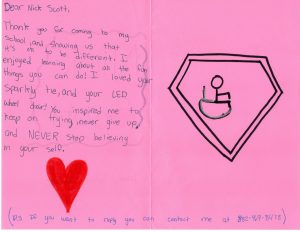 Dear Nick Scott,
Thank you for coming to my
school, and showing us that
it's ok to be different. I
enjoyed learning about all the fun
things you can do! I loved your
Sparkly tie, and your LED
wheel chair! You inspired me to
keep on trying, never give up,
and NEVER stop believing
in your self.
(P.S If you want to reply you can contact me at